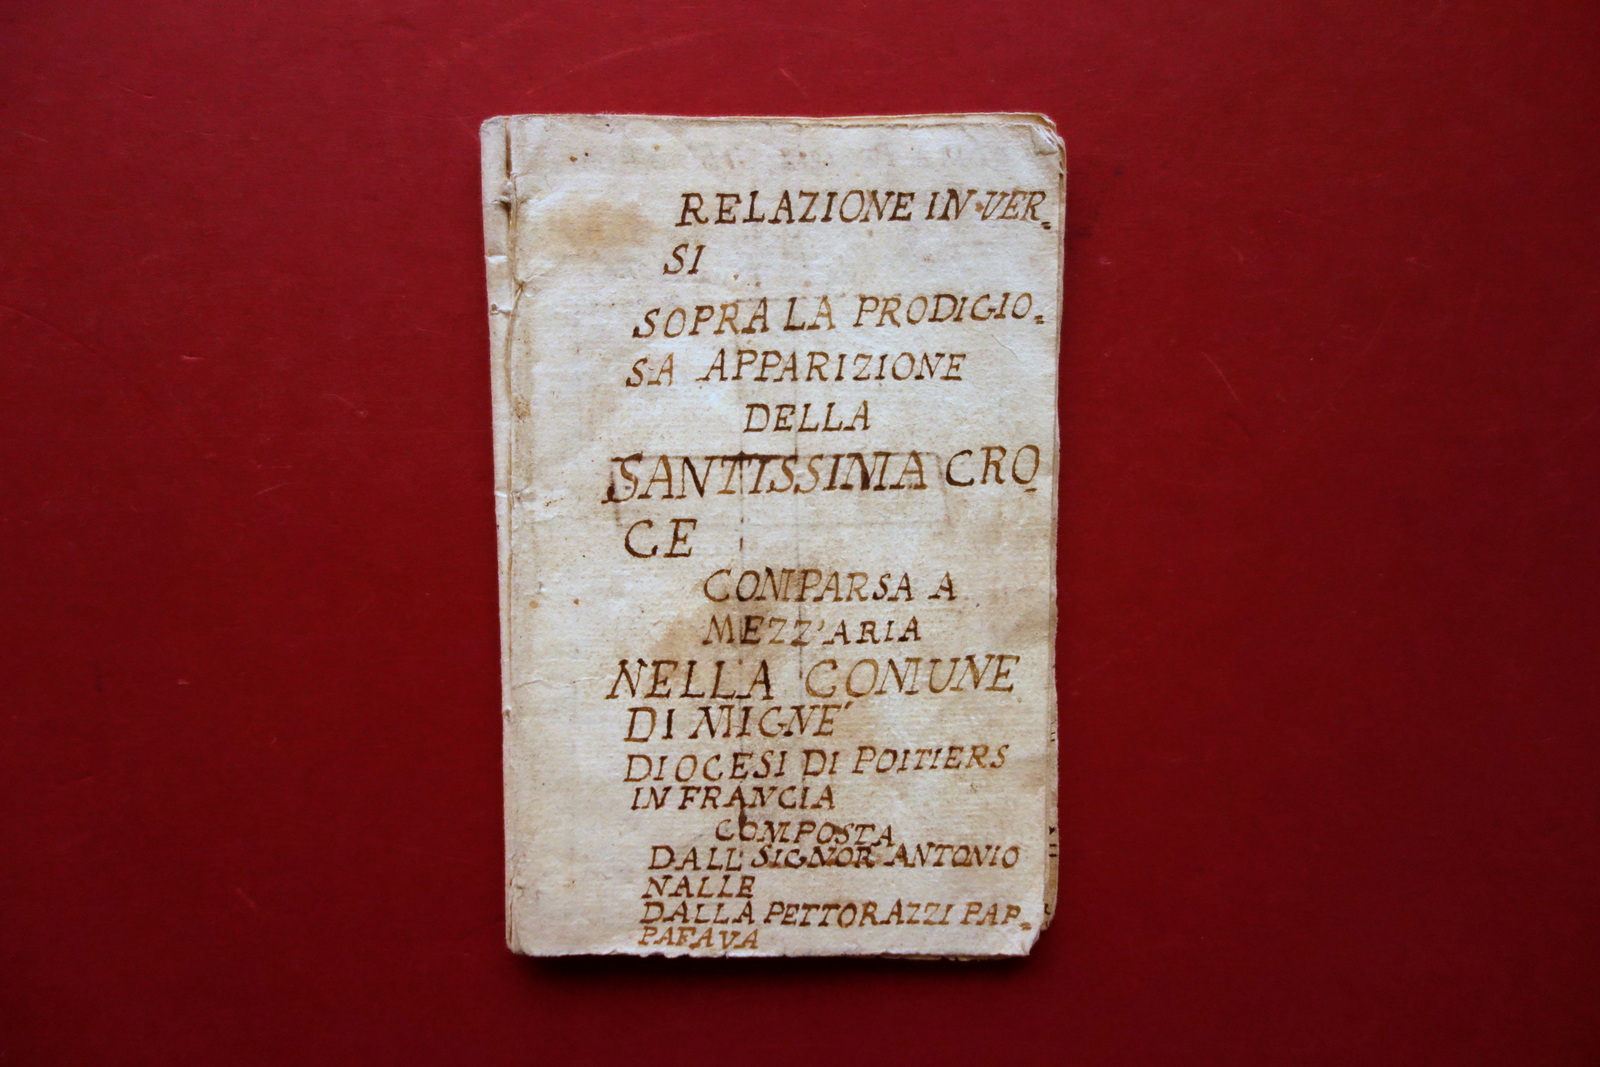 RELAZIONE IN VER=
SI
SOPRA LA PRODIGIO=
SA APPARIZIONE
DELLA
SANTISSIMA CRO
CE
COMPARSA A
MEZZ'ARIA
NELLA COMUNE
DI MIGNÉ
DIOCESI DI POITIERS
IN FRANCIA
COMPOSTA
DALL' SIGNOR ANTONIO
NALLE
DALLA PETTORAZZI PAP=
PAFAVA